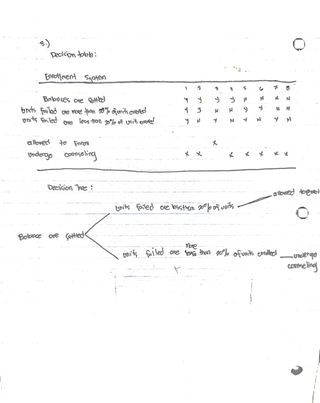 3.)
Decision table:
Enrollment System
1 2 3 4 5 6 7 8
Balances are settled Y Y Y Y N N N N
Units failed are more than 20% of units enrolled Y Y N N Y Y N N
Units failed are less than 20% of units enrolled Y N Y N Y N Y N
allowed to Enroll x
Undergo counseling x x x x x x x
Decision Tree:
allowed to enroll
Units failed are less than 20% of units
Balance are settled
more
Units failed are less than 20% of units enrolled
undergo
counseling